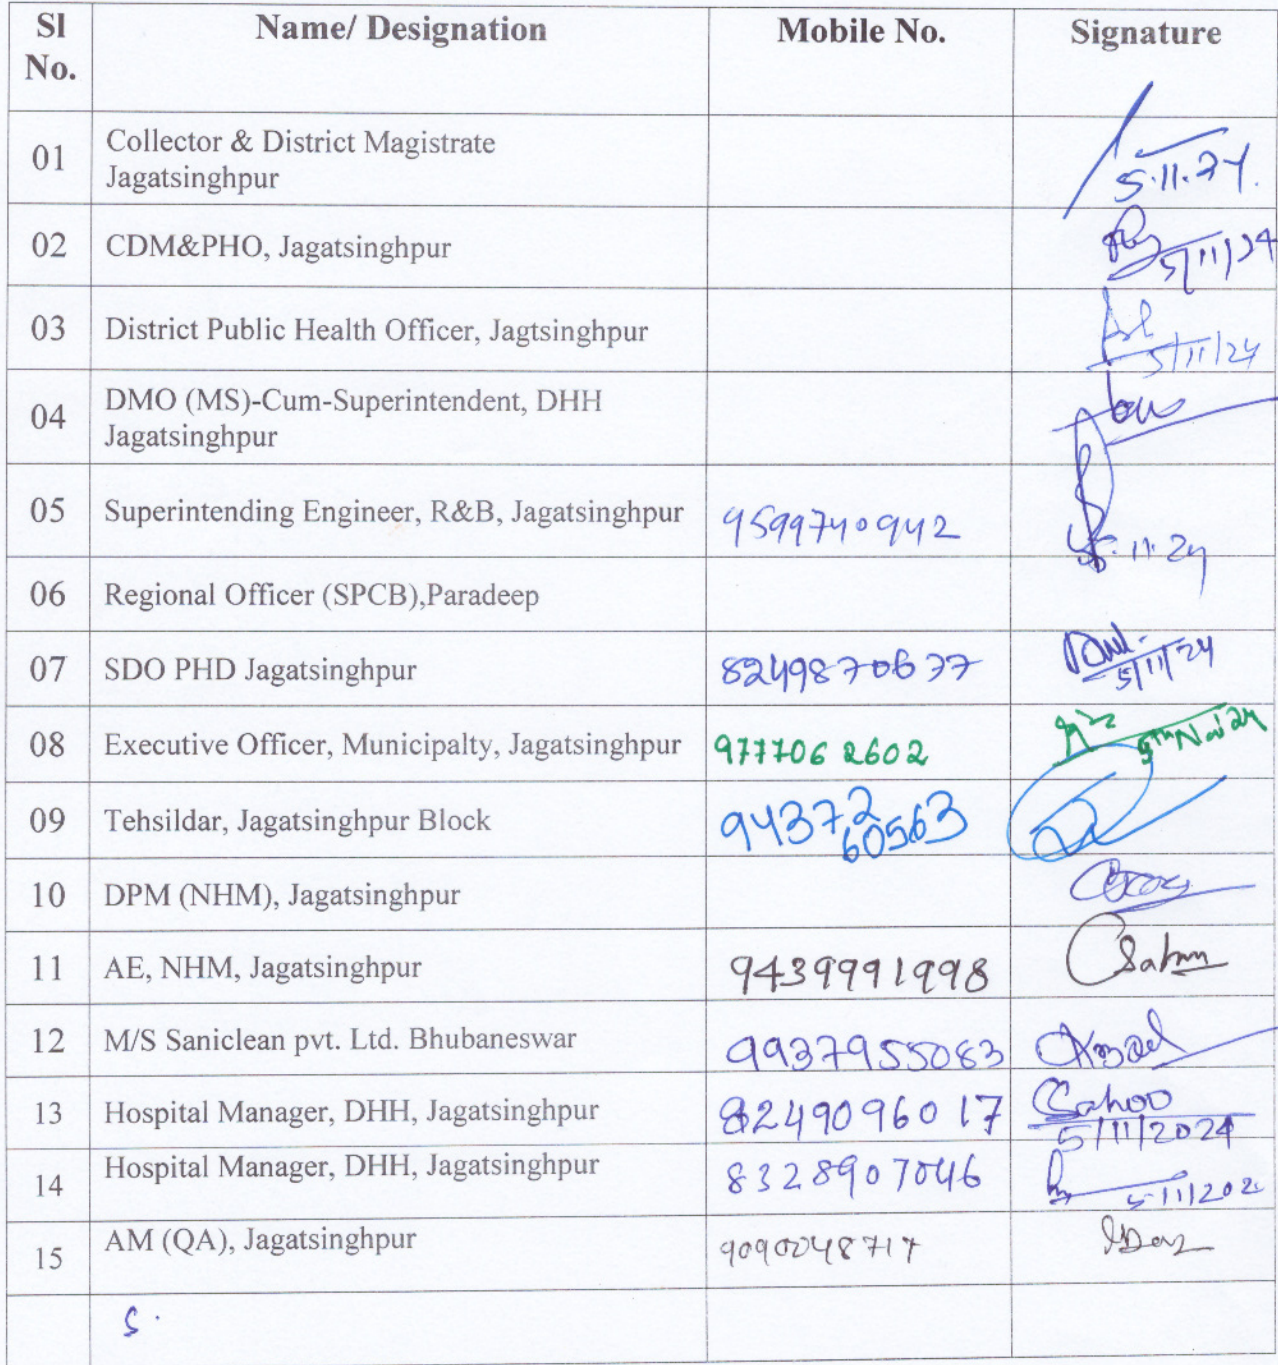 Sl No. Name/ Designation Mobile No. Signature
01 Collector & District Magistrate
Jagatsinghpur 5.11.24.
02 CDM&PHO, Jagatsinghpur 5/11/24
03 District Public Health Officer, Jagtsinghpur 5/11/24
04 DMO (MS)-Cum-Superintendent, DHH
Jagatsinghpur
05 Superintending Engineer, R&B, Jagatsinghpur 9599740942 5.11.24
06 Regional Officer (SPCB),Paradeep
07 SDO PHD Jagatsinghpur 8249870677 5/11/24
08 Executive Officer, Municipalty, Jagatsinghpur 9777062602 5th Nov'24
09 Tehsildar, Jagatsinghpur Block 94372
60563
10 DPM (NHM), Jagatsinghpur
11 AE, NHM, Jagatsinghpur 9439991998
12 M/S Saniclean pvt. Ltd. Bhubaneswar 9937955083
13 Hospital Manager, DHH, Jagatsinghpur 8249096017 Sahoo
5/11/2024
14 Hospital Manager, DHH, Jagatsinghpur 8328907046 5/11/202
15 AM (QA), Jagatsinghpur 9090048717